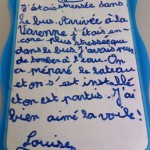 J'étais stressée dans
le bus. Arrivée à la
Varenne j'étais en-
core plus stressée que
dans le bus. J'avais peur
de tomber à l'eau. On
a préparé le bateau
et on s'est installé
et on est partis. J'ai
bien aimé la voile!
Louise